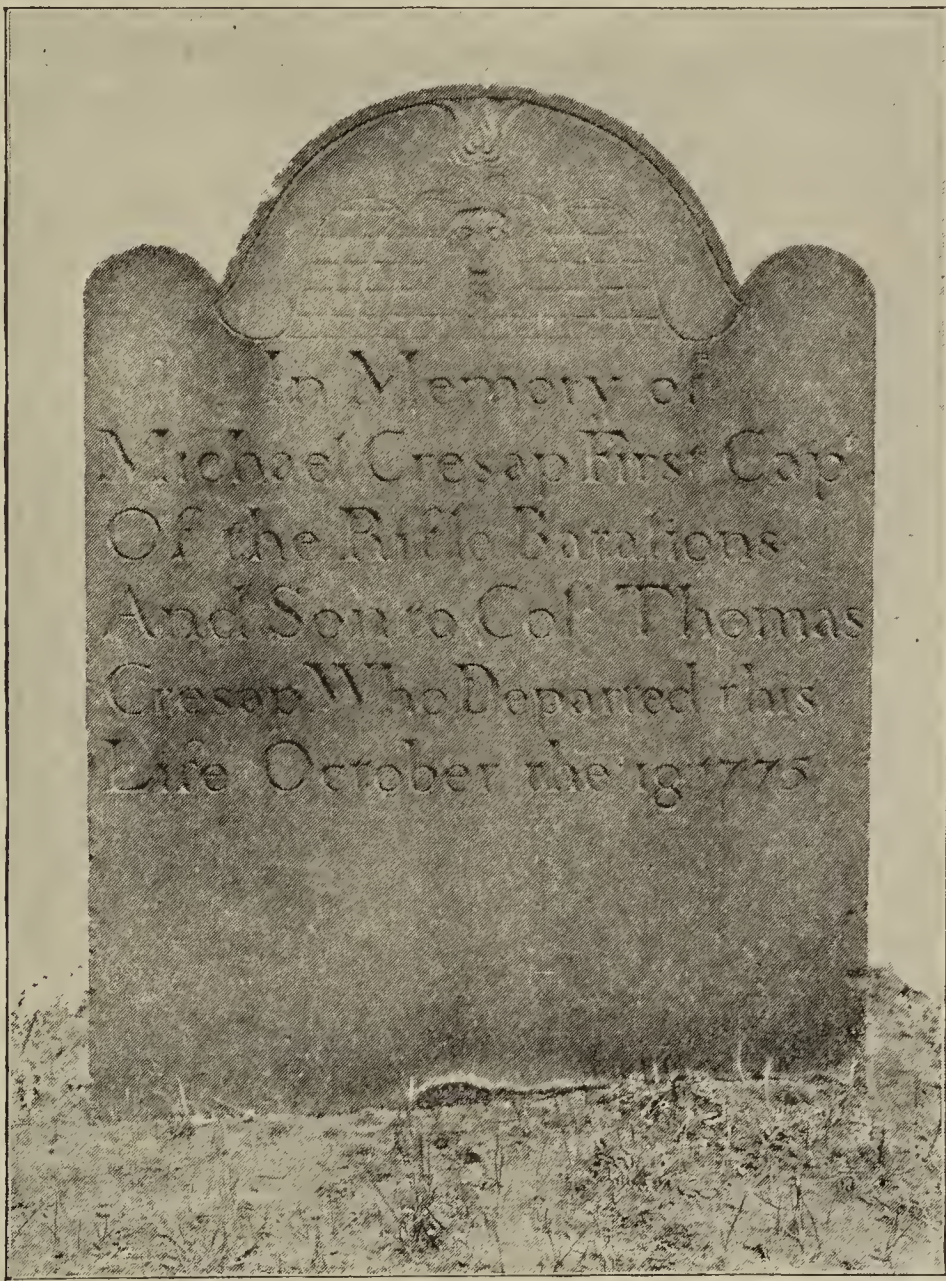 In Memory of
Michael Cresap First Capt
Of the Rifle Batalions
And Son to Col Thomas
Cresap Who Departed this
Life October the 18 1775